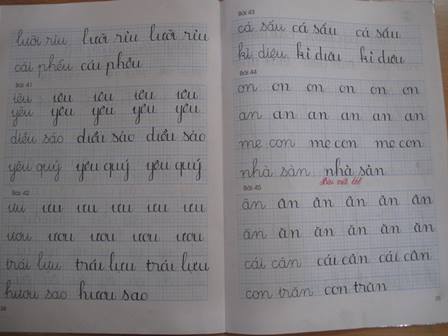 lưỡi rìu lưỡi rìu lưỡi rìu
cái phễu cái phễu
Bài 41
iêu iêu iêu iêu iêu
yêu yêu yêu yêu yêu
diều sáo diều sáo diều sáo
yêu quý yêu quý yêu quý
Bài 42
ưu ưu ưu ưu ưu
ươu ươu ươu ươu ươu
trái lựu trái lựu trái lựu
hươu sao hươu sao
38
Bài 43
cá sấu cá sấu cá sấu
kì diệu kì diệu kì diệu
Bài 44
on on on on on on
an an an an an an
mẹ con mẹ con mẹ con
nhà sàn nhà sàn
Bài viết
Bài 45
ân ân ân ân ân ân
ăn ăn ăn ăn ăn ăn
cái cân cái cân cái cân
con trăn con trăn